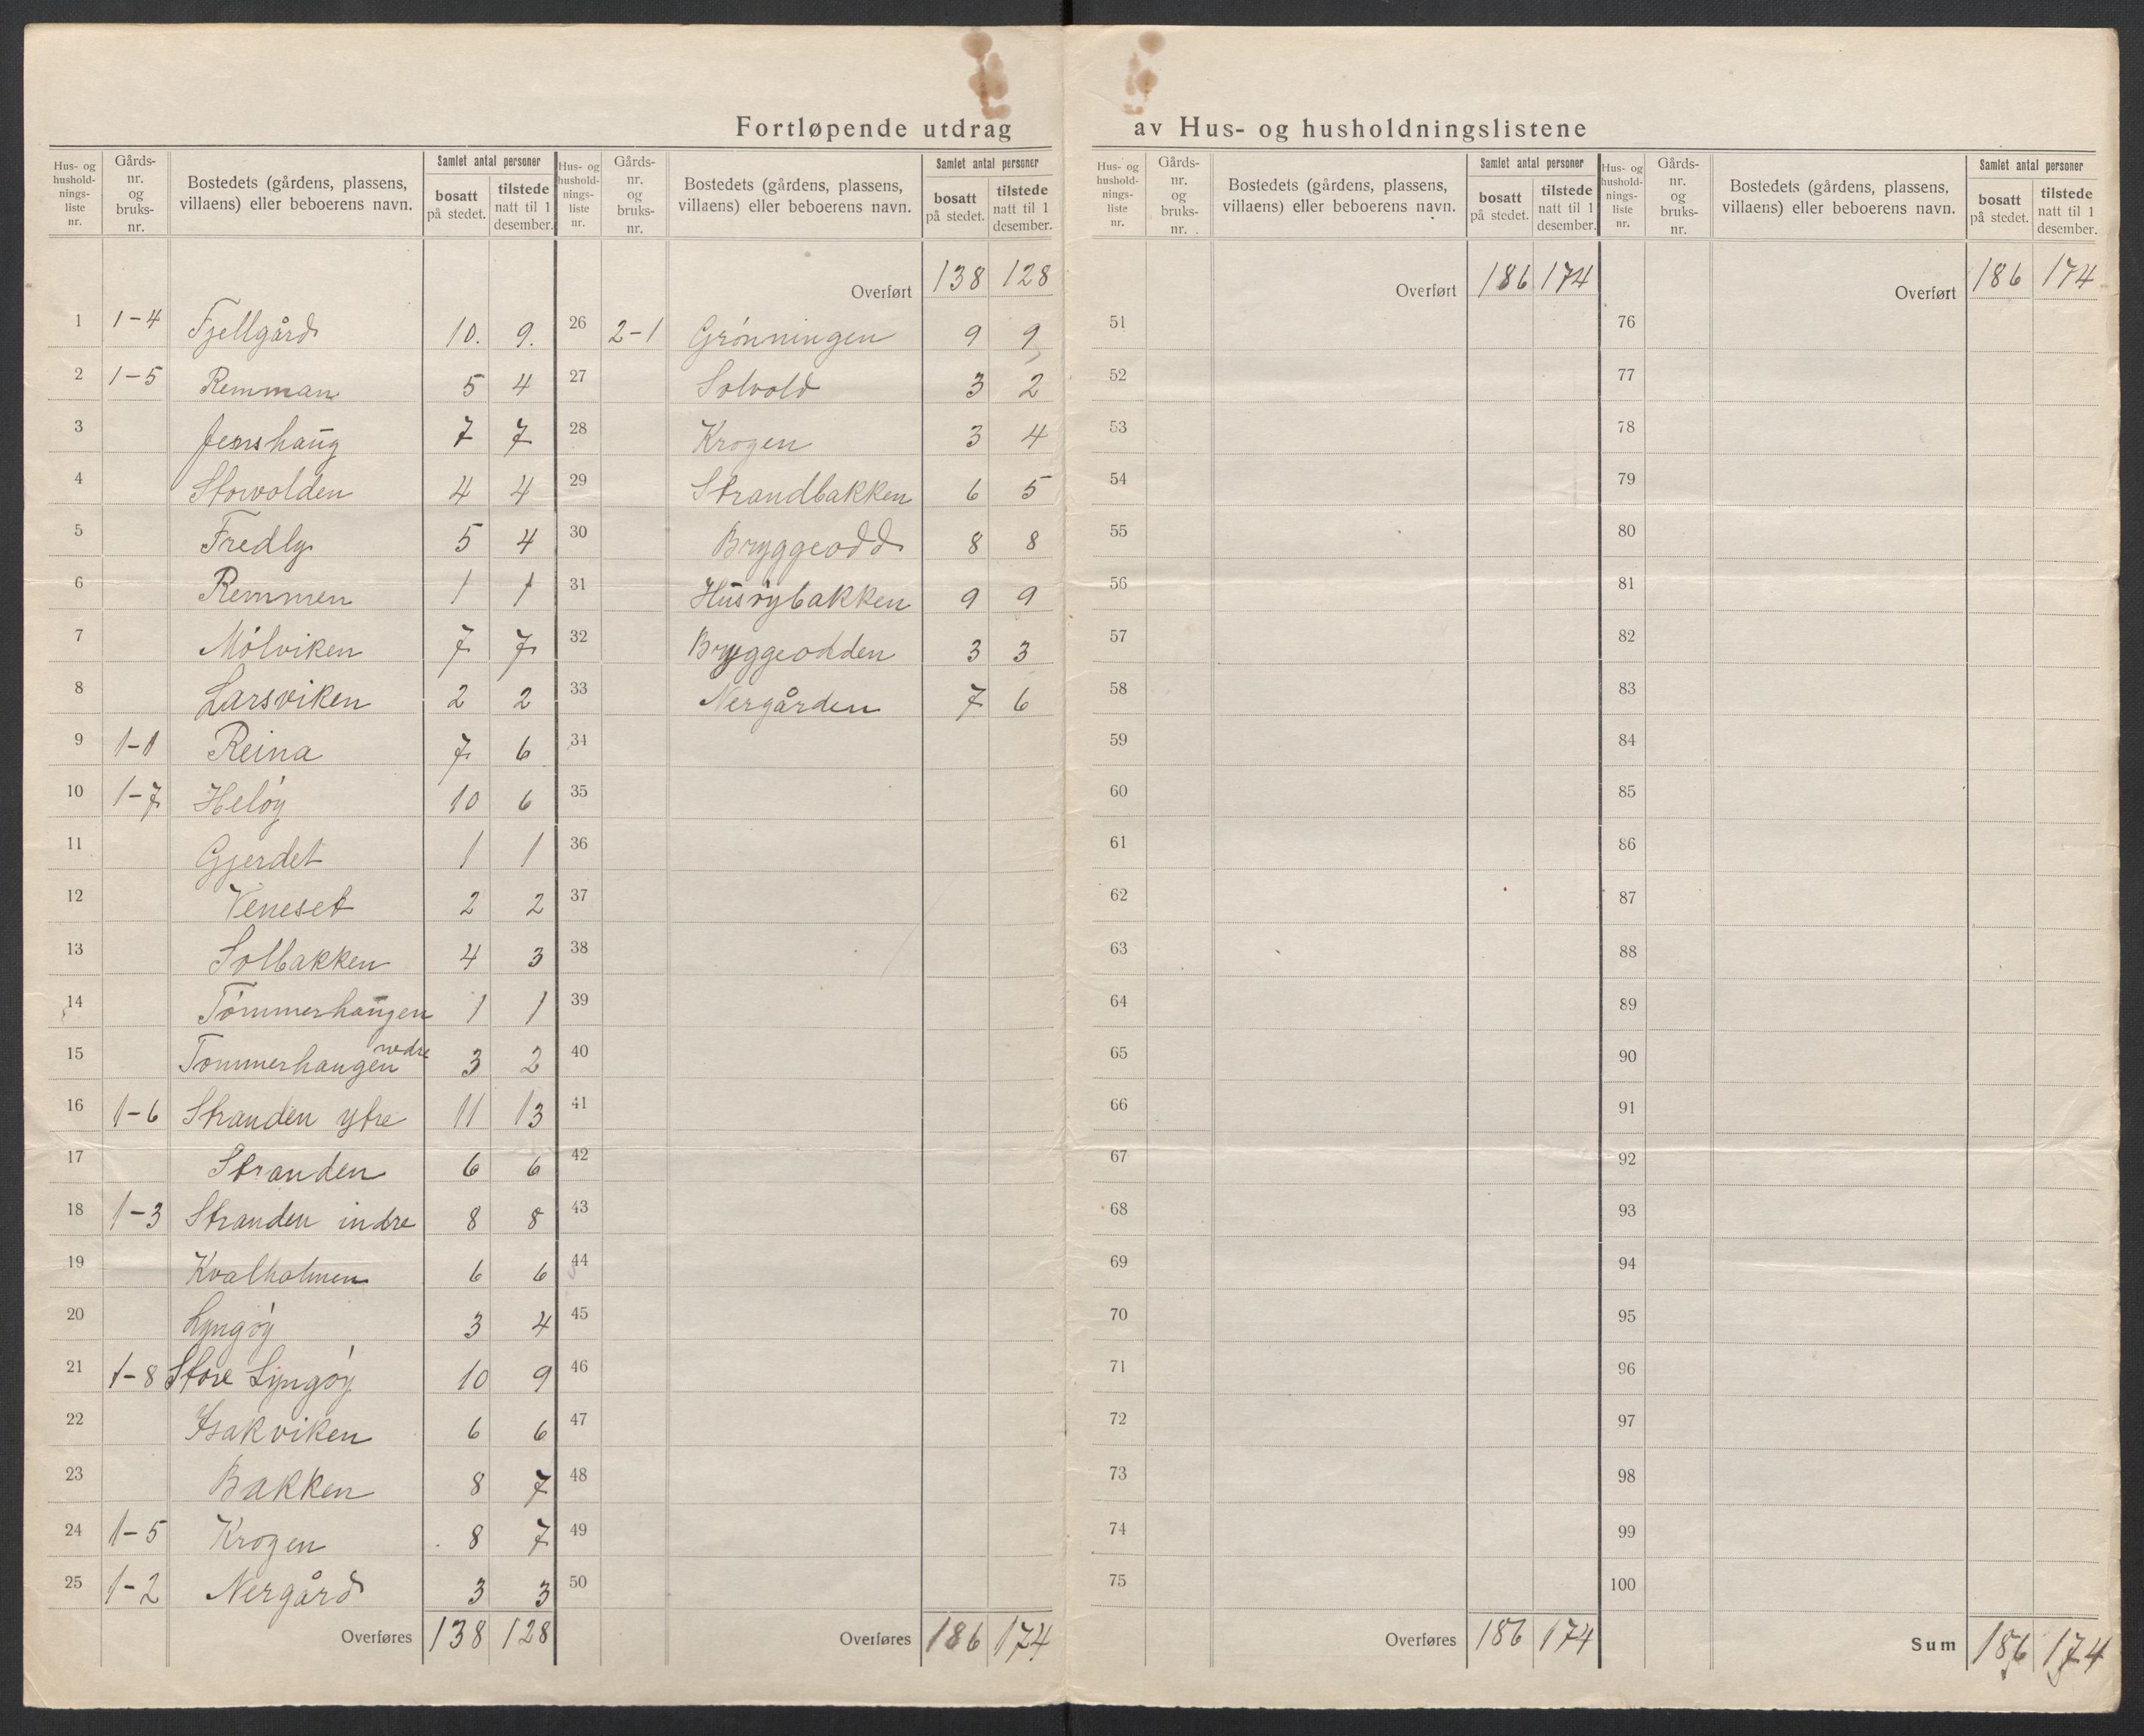 Fortløpende utdrag av Hus- og husholdningslistene
Hus- og husholdnings-liste nr. | Gårds-nr. og bruks-nr. | Bostedets (gårdens, plassens, villaens) eller beboerens navn. | Samlet antal personer | bosatt på stedet. | tilstede natt til 1 desember.
1 1-4 Fjellgård 10. 9.
2 1-5 Remman 5 4
3 Jenshaug 7 7
4 Storvolden 4 4
5 Fredly 5 4
6 Remmen 1 1
7 Mólviken 7 7
8 Larsviken 2 2
9 1-1 Reina 7 6
10 1-7 Helóy 10 6
11 Gjerdet 1 1
12 Veneset 2 2
13 Solbakken 4 3
14 Tómmerhaugen 1 1
15 Tommerhaugen nedre 3 2
16 1-6 Stranden ytre 11 13
17 Stranden 6 6
18 1-3 Stranden indre 8 8
19 Kvalholmen 6 6
20 Lyngóy 3 4
21 1-8 Store Lyngóy 10 9
22 Isakviken 6 6
23 Bakken 8 7
24 1-5 Krogen 8 7
25 1-2 Nergård 3 3
Overføres 138 128
Hus- og husholdnings-liste nr. | Gårds-nr. og bruks-nr. | Bostedets (gårdens, plassens, villaens) eller beboerens navn. | Samlet antal personer | bosatt på stedet. | tilstede natt til 1 desember.
Overført 138 128
26 2-1 Grónningen 9 9
27 Solvold 3 2
28 Krogen 3 4
29 Strandbakken 6 5
30 Bryggeodd 8 8
31 Husóybakken 9 9
32 Bryggeodden 3 3
33 Nergården 7 6
34
35
36
37
38
39
40
41
42
43
44
45
46
47
48
49
50
Overføres 186 174
Hus- og husholdnings-liste nr. | Gårds-nr. og bruks-nr. | Bostedets (gårdens, plassens, villaens) eller beboerens navn. | Samlet antal personer | bosatt på stedet. | tilstede natt til 1 desember.
Overført 186 174
51
52
53
54
55
56
57
58
59
60
61
62
63
64
65
66
67
68
69
70
71
72
73
74
75
Overføres 186 174
Hus- og husholdnings-liste nr. | Gårds-nr. og bruks-nr. | Bostedets (gårdens, plassens, villaens) eller beboerens navn. | Samlet antal personer | bosatt på stedet. | tilstede natt til 1 desember.
Overført 186 174
76
77
78
79
80
81
82
83
84
85
86
87
88
89
90
91
92
93
94
95
96
97
98
99
100
Sum 186 174